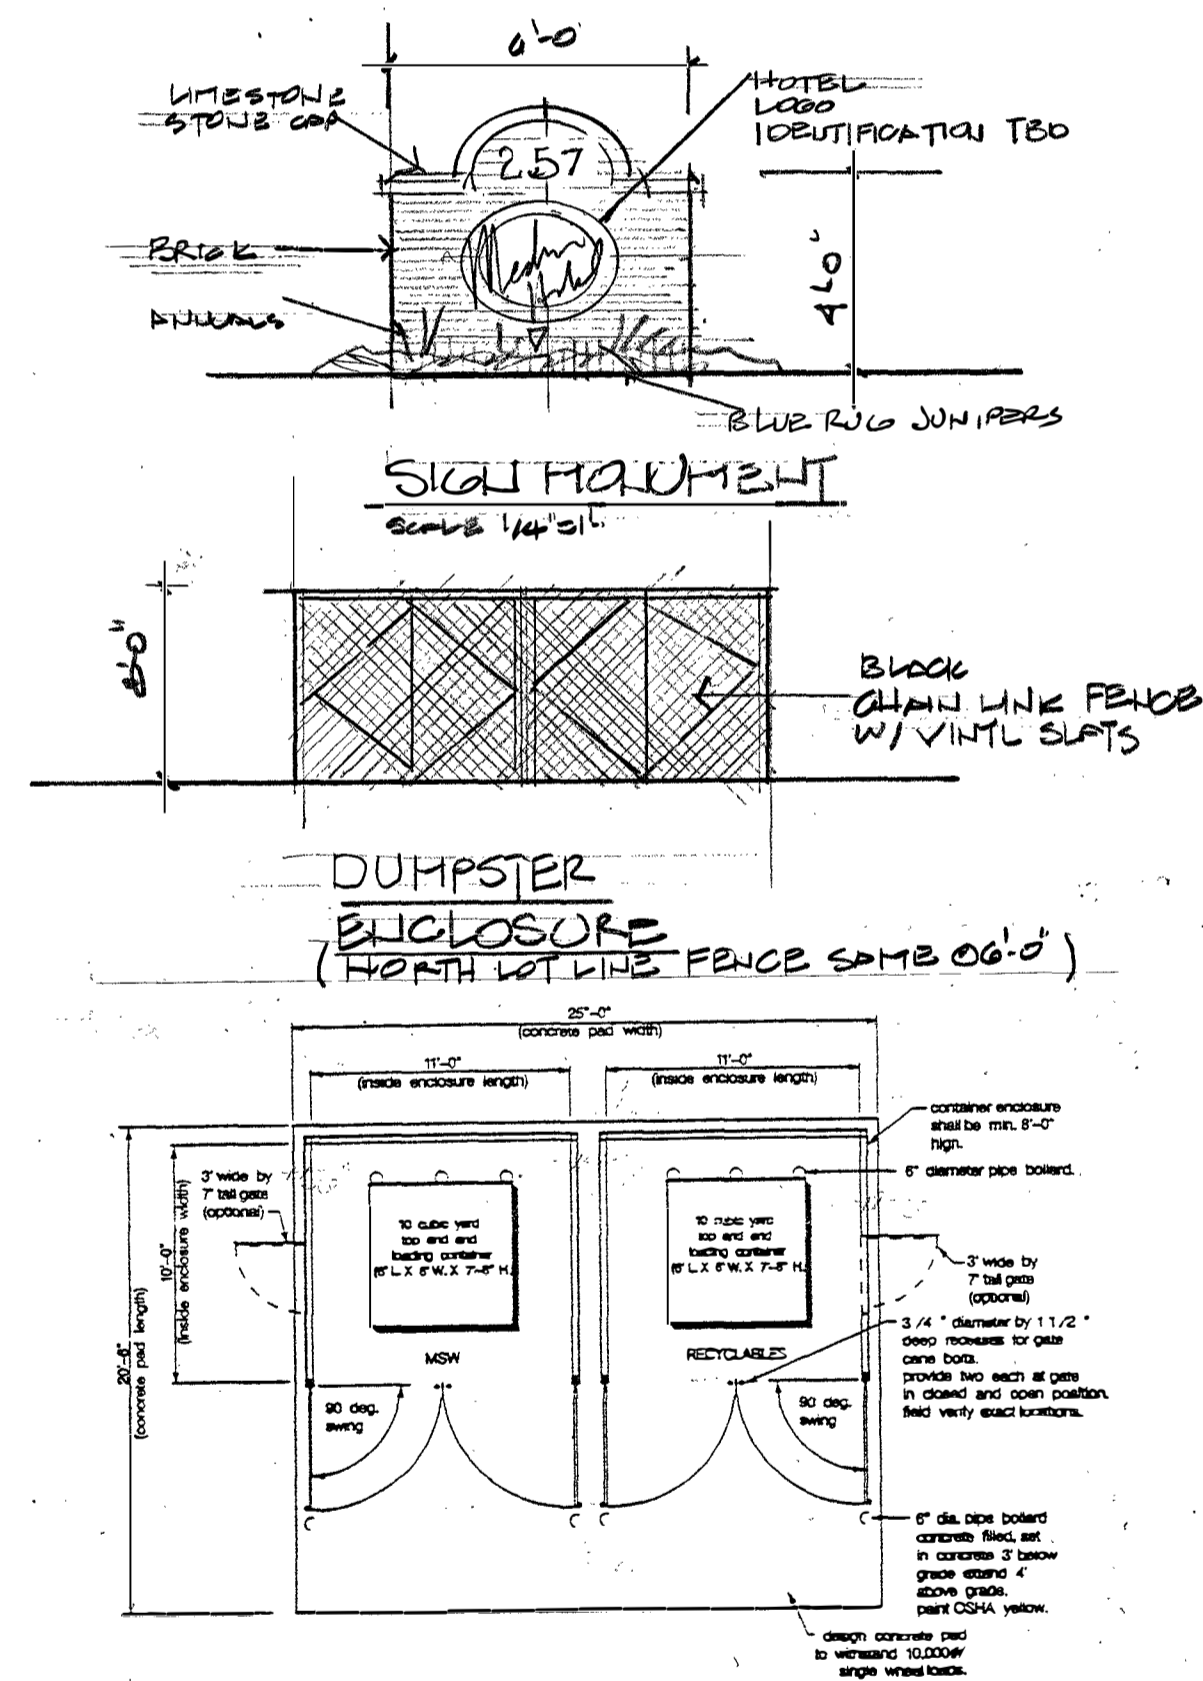 6'-0"
LIMESTONE
STONE CAP
HOTEL
LOGO
IDENTIFICATION TBD
257
BRICK
ANNUALS
4'-0"
BLUE RUG JUNIPERS
SIGN MONUMENT
SCALE 1/4"=1'
8'-0"
BLACK
CHAIN LINK FENCE
W/ VINYL SLATS
DUMPSTER
ENCLOSURE
(NORTH LOT LINE FENCE SAME @6'-0")
25'-0"
(concrete pad width)
11'-0"
(inside enclosure length)
11'-0"
(inside enclosure length)
container enclosure
shall be min. 8'-0"
high.
6" diameter pipe bollard.
3' wide by
7' tall gate
(optional)
10'-0"
(inside enclosure width)
20'-6"
(concrete pad length)
10 cubic yard
top and end
loading container
(6' L X 6' W. X 7'-6" H.
10 cubic yard
top and end
loading container
(6' L X 6' W. X 7'-6" H.
MSW
RECYCLABLES
3' wide by
7' tall gate
(optional)
3 /4 " diameter by 1 1/2 "
deep recesses for gate
cane bolts.
provide two each at gate
in closed and open position.
field verify exact locations.
90 deg.
swing
90 deg.
swing
6" dia. pipe bollard
concrete filled, set
in concrete 3' below
grade extend 4'
above grade.
paint OSHA yellow.
design concrete pad
to withstand 10,000#
single wheel loads.